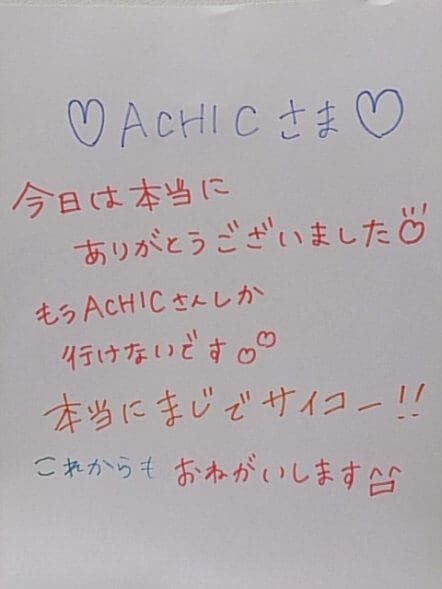 ♡ACHICさま♡
今日は本当に
ありがとうございました♡
もうACHICさんしか
行けないです♡♡
本当にまじでサイコー!!
これからも おねがいします